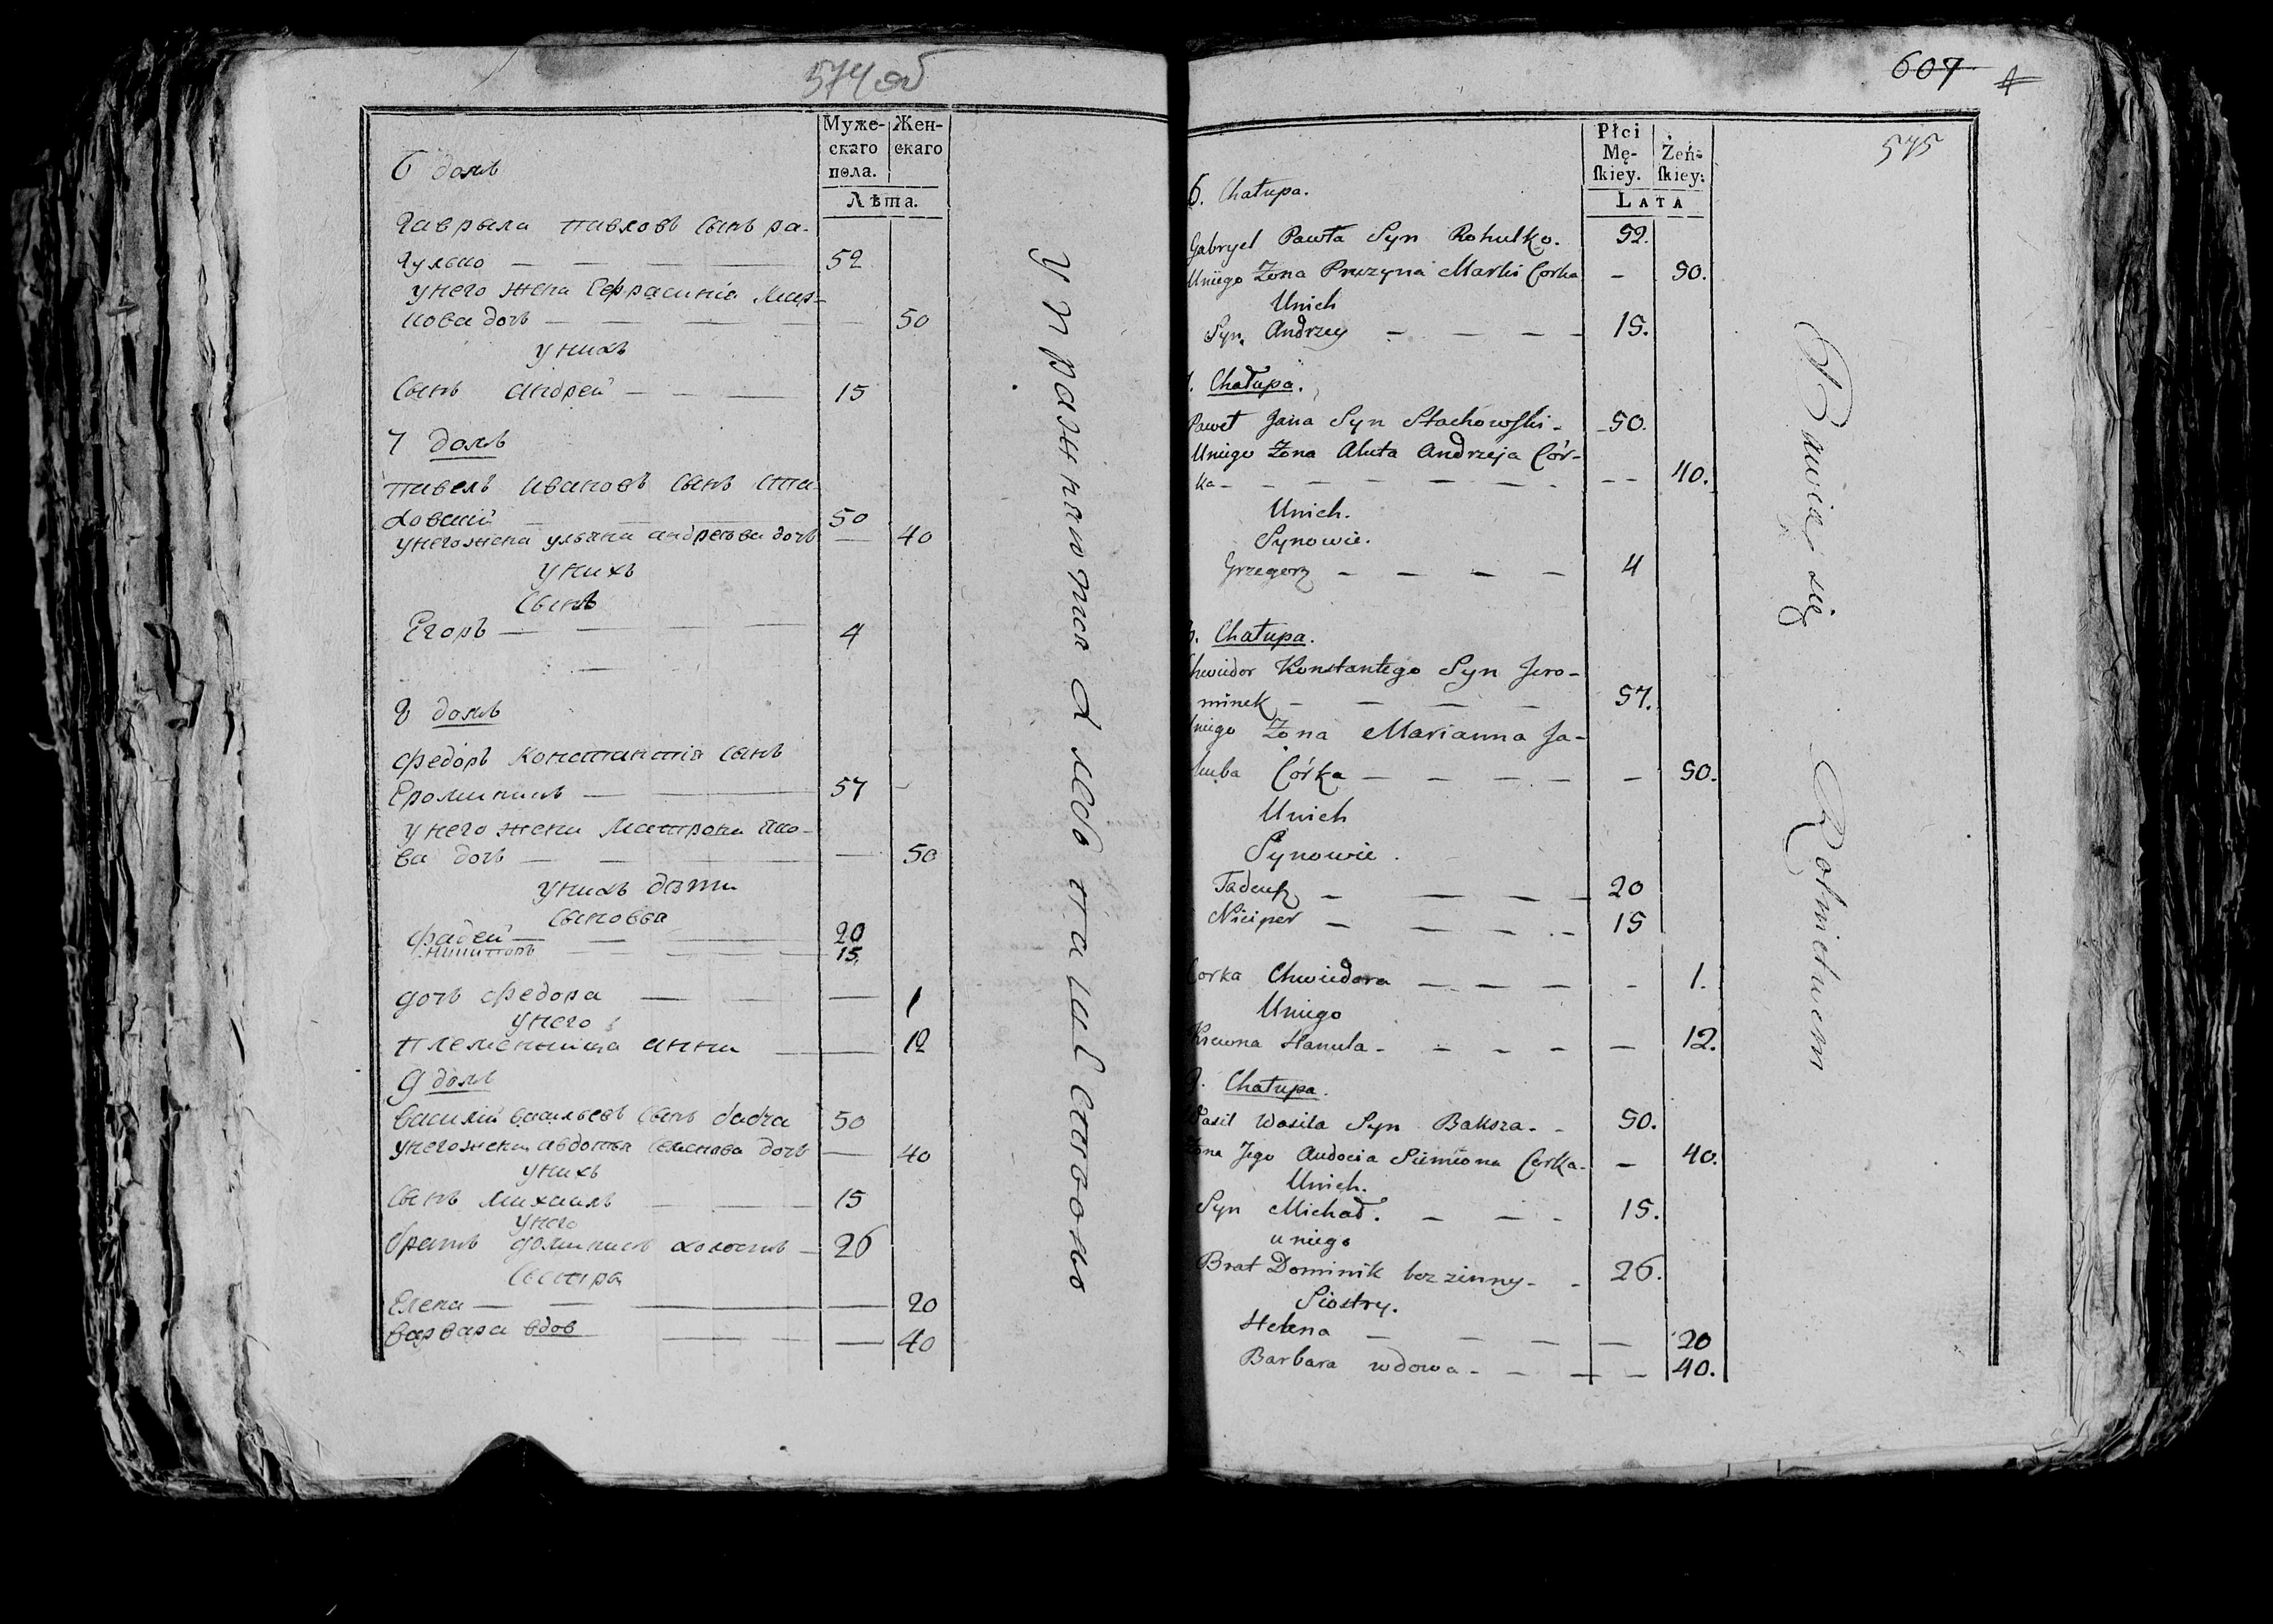 574 об
Муже-
скаго
пола.
Жен-
скаго
Лѣта.
6 домъ
Гаврыла павловъ сынъ ра-
гулько — — — — 52
у него жена Ефрасинiя Мар-
кова дочь — — — — — 50
у нихъ
Сынъ Андрей — — — 15
7 домъ
павелъ ивановъ сынъ Ста-
ховский — — — 50
у него жена ульяна андреева дочь — 40
у нихъ
Сынъ
Егоръ — — — — 4
8 домъ
федоръ Константiя сынъ
Ероминикъ — — 57
у него жена Матрона Яко-
ва дочь — — — — — 50
у нихъ дѣти
сыновья
фадей — — — 20
Никипоръ — — — 15.
дочь федора — — — 1
у него
племенница анна — — 12
9 домъ
василий васильевъ сынъ бакша 50
у него жена авдотья семенова дочь — 40
у нихъ
сынъ михаилъ — — 15
у него
братъ доминикъ холостъ — 26
Сестра
Елена — — — — 20
варвара вдов — — — 40
упражняются хлебопашеством
607
575
Płci
Mę-
ſkiey.
Żeń-
ſkiey:
LATA
6. Chałupa.
Gabryel Pawła Syn Rohulko. 52.
Uniego Żona Pruzyna Marki Corka — 50.
Unich
Syn. Andrzey — — — — 15.
. Chałupa.
Paweł Jana Syn Stachowſki - 50.
Uniego Żona Aluta Andrzeja Cór-
ka - — — — — — - - - 40.
Unich.
Synowie.
Grzegorz — — — — 4
. Chałupa.
hwiedor Konstantego Syn Jero-
minek — — — — 57.
niego Żona Marianna Ja-
kuba Córka — — — — — 50.
Unich
Synowie.
Tadeuſz — — — — 20
Niciper — — — - - 15
Corka Chwiedora — — — - 1.
Uniego
Krewna Hanula - — — — — 12.
9. Chałupa.
Wasil Wasila Syn Baksza. - 50.
Żona Jego Audocia Siemiona Corka - — 40.
Unich.
Syn Michał. — — - 15.
u niego
Brat Dominik bez zinny - - 26.
Siostry.
Helena — — — — 20
Barbara wdowa - - — — 40.
Bawią się Rolnictwem